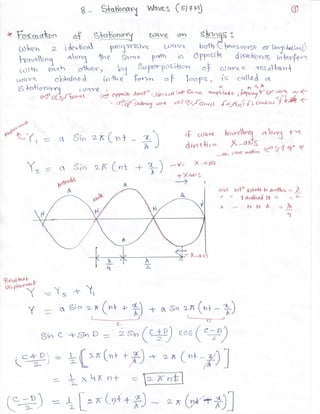 8 - Stationary Waves (S17M) ①
* Formation of Stationary wave on Strings :
When 2 identical progressive wave both (transverse or longitudinal)
travelling along the same path in opposite directions interfere
with each other, by superposition of waves resultant
wave obtained in the form of loops, is called a
Stationary wave.
Y₁ = a Sin 2π (nt - x/λ) if wave travelling along +ve
direction X-axis
Y₂ = a Sin 2π (nt + x/λ) -ve X-axis
+X axis
Antinode
Node
A A A
N N N N
A A A
λ/4 λ/2 -X-axis
Resultant
displacement
Y = Y₂ + Y₁
Y = a Sin 2π (nt + x/λ) + a Sin 2π (nt - x/λ)
Sin C + Sin D = 2 Sin (C+D/2) cos (C-D/2)
(C+D/2) = 1/2 [2π (nt + x/λ) + 2π (nt - x/λ)]
= 1/2 × 4π nt = 2πnt
(C-D/2) = 1/2 [2π (nt + x/λ) - 2π (nt - x/λ)]